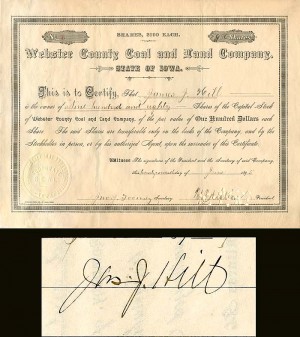 SHARES, $100 EACH.
Webster County Coal and Land Company.
STATE OF IOWA.
This is to Certify, That James J. Hill
is the owner of Three hundred and eighty Shares of the Capital Stock
of Webster County Coal and Land Company, of the par value of One Hundred Dollars each
Share. The said Shares are transferable only on the books of the Company, and by the
Stockholder in person, or by his authorized Agent, upon the surrender of this Certificate.
Witness The signatures of the President and the Secretary of said Company,
this day of June
Secretary
President
Jas. J. Hill